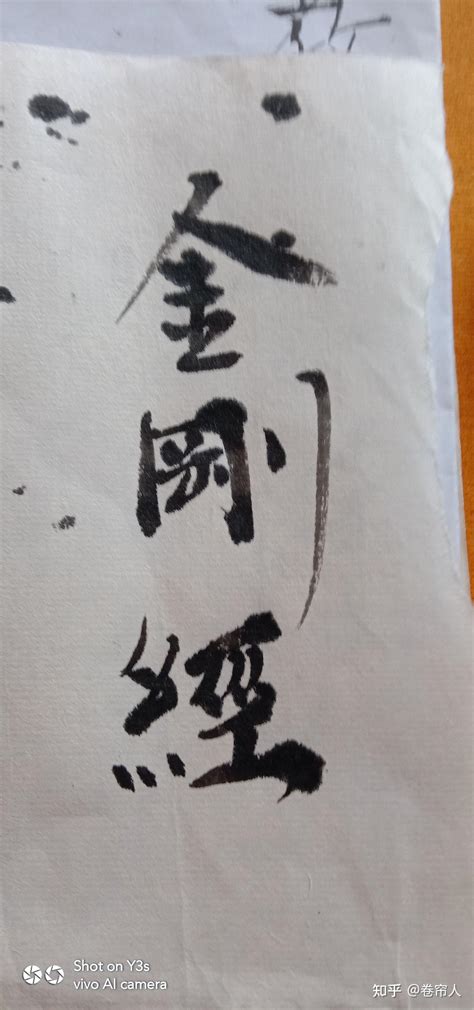 金剛經
Shot on Y3s
vivo AI camera
知乎 @卷帘人